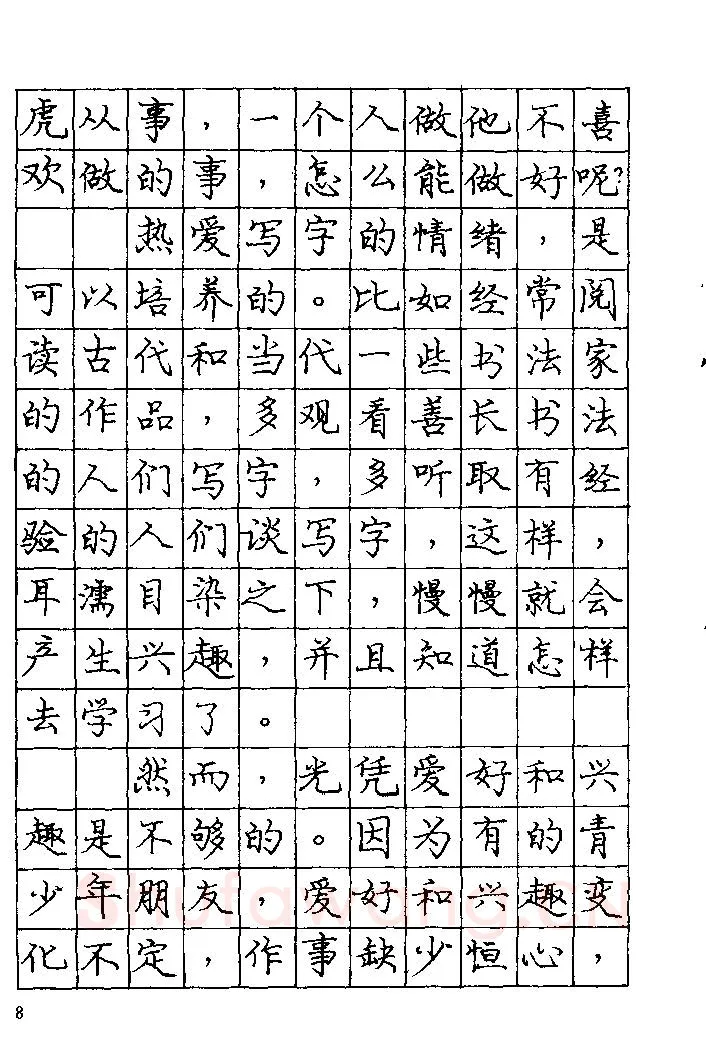 虎从事，一个人做他不喜
欢做的事，怎么能做好呢?
热爱写字的情绪，是
可以培养的。比如经常阅
读古代和当代一些书法家
的作品，多观看善长书法
的人们写字，多听取有经
验的人们谈写字，这样，
耳濡目染之下，慢慢就会
产生兴趣，并且知道怎样
去学习了。
然而，光凭爱好和兴
趣是不够的。因为有的青
少年朋友，爱好和兴趣变
化不定，作事缺少恒心，
Shufawang.CN
8